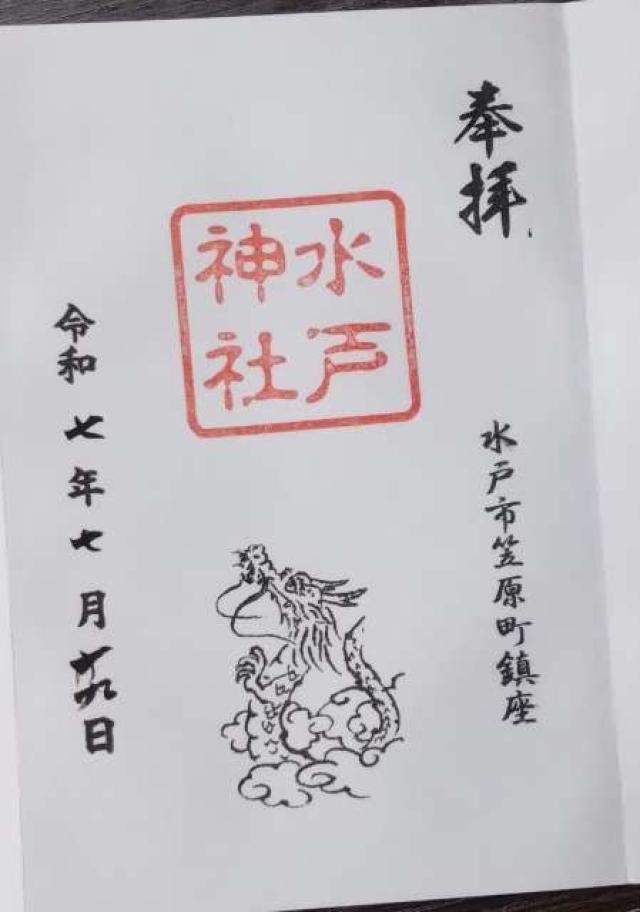 奉拝
水戸市笠原町鎮座
水戸
神社
令和七年七月十九日